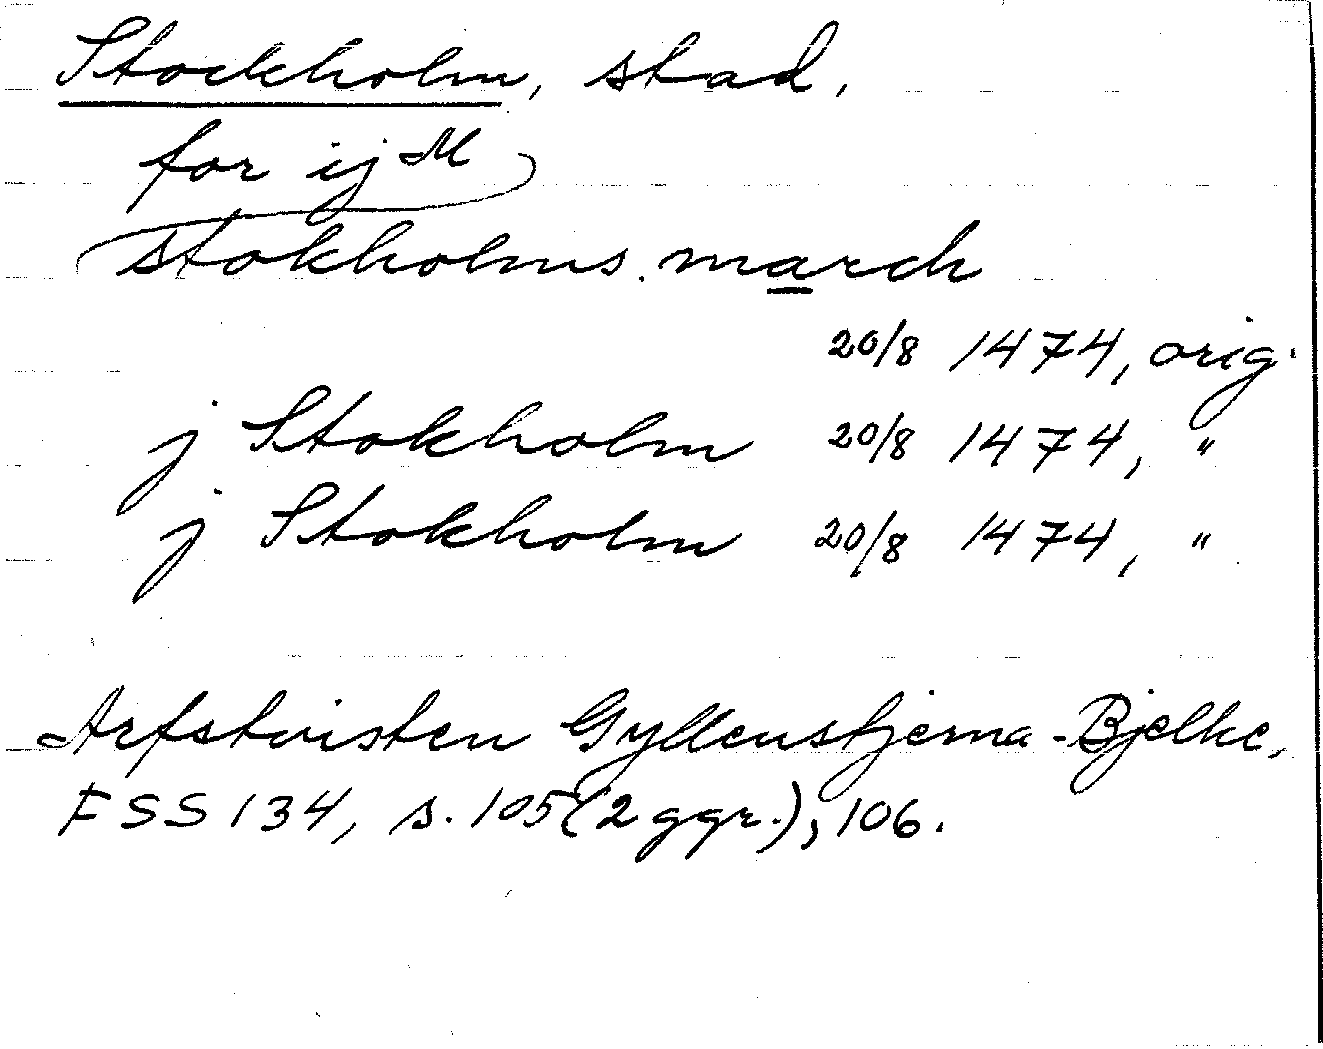 Stockholm, stad,
for ij M
stokholms. march
20/8 1474, orig.
j Stokholm 20/8 1474, "
j Stokholm 20/8 1474, "
Arfstvisten Gyllenstjerna-Bjelke,
FSS 134, s. 105 (2 ggr.), 106.